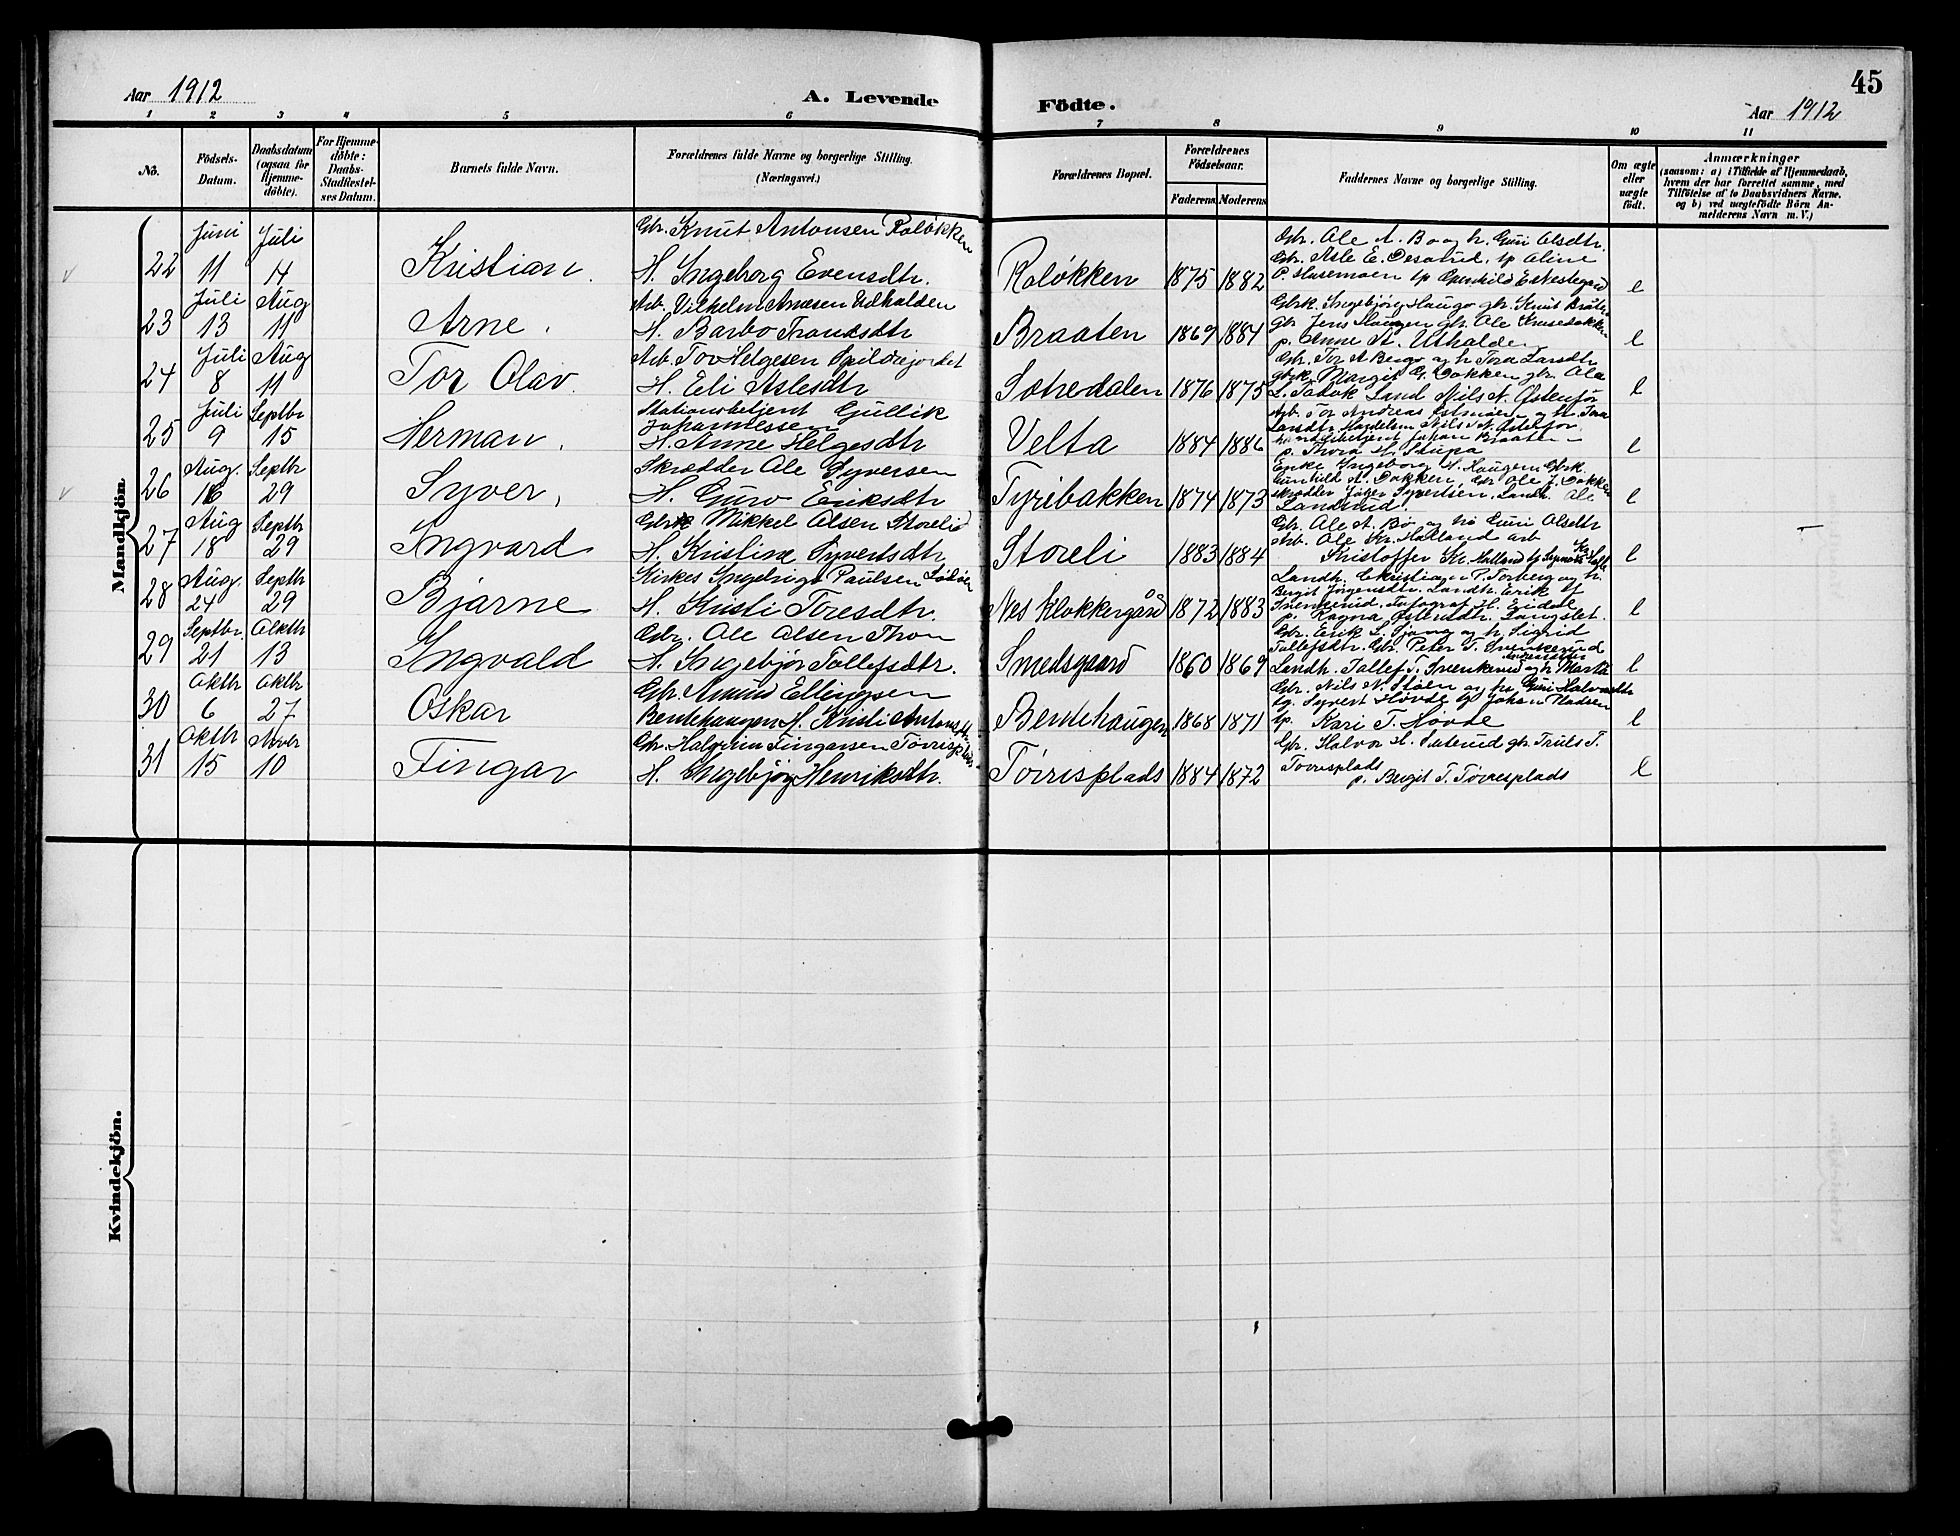 Aar 1912
A. Levende
Födte.
45
Aar 1912
1 2 3 4 5 6 7 8 9 10 11
No.
Födsels-Datum.
Daabsdatum (ogsaa for Hjemme-döbte).
For Hjemme-döbte: Daabs-Stadfæstel-ses Datum.
Barnets fulde Navn.
Forældrenes fulde Navne og borgerlige Stilling. (Næringsvei.)
Forældrenes Bopæl.
Forældrenes Födselsaar.
Faderens. Moderens.
Faddernes Navne og borgerlige Stilling.
Om ægte eller uægte födt.
Anmærkninger
(saasom: a) i Tilfælde af Hjemmedaab, hvem der har forrettet samme, med Tilföielse af to Daabsvidners Navne, og b) ved uægtefödte Börn An-melderens Navn m. V.)
Mandkjön.
22 Juni 11 Juli 14 Kristian. Gbr. Knut Antonsen Roløkken
H. Ingeborg Evensdtr. Roløkken 1875 1882
Gbr. Ole A. Bo og h. Guri Olsdtr.
Gbr. Asle E. Desarud, tp Oline
P. Husemoen tp Gunhild E Nestegard e
23 Juli 13 Aug 11 Arne. Arb. Vilhelm Arnesen Udhalden
H. Barbo Trondsdtr Braaten 1869 1884
Gbrk. Ingebjørg Haugo gbr. Knut Braten
Gbr Jens Haugen gbr. Ole
p. Anne A. Uthalden e
24 Juli 8 Aug 11 Tor Olav. Arb. Tov Helgesen Spildrejordet
H. Eli Aslesdtr Sørredalen 1876 1875
Gbr. Tor A Bergo og h Tora Larsdtr
gbrk. Margit G. Dokken gbr Ole
L. Nils N. Østenfor e
25 Juli 9 Septbr 15 Herman. Stationsbetjent Gullik
Johannessen
H. Anne Helgesdtr Velta 1884 1886
Arb. Tor Andreas Østmoen og h. Tora
Larsdtr. Handelsm Nils N. Østenfor
handelsbetjent Johan Braaten
p. Thora H. Stupa e
26 Aug. 16 Septbr 29 Syver. Skrædder Ole Syversen
H. Guro Eriksdtr Tyribakken 1874 1873
Enke Ingeborg H. Haugen Gbrk.
Gunhild A. Dokken, Gbr Ole J. Dokken
skrædder Syvertsen. Landh. Ole
Landrud. e
27 Aug 18 Septbr 29 Ingvard Gbrk Mikkel Olsen Storelid
H. Kristine Syvertsdtr Storeli 1883 1884
Gbr. Ole A. Bø og h Guri Olsdtr
arb. Ole Kr. Halland arb
Kristoffer Kr. Halland e
28 Aug. 24 Septbr 29 Bjarne Kirkes Ingebrigt Paulsen
H. Kristi Toresdtr. Nes klokkergård 1872 1883
Landh. Christian P. Torberg og h.
Birgit Jørgensdtr. Landh. Erik
Svenkerud. Fotograf H. Eidal
p. Ragna Østensdtr. Langslet. e
29 Septbr. 21 Oktbr 13 Ingvald Gbr. Ole Olsen Thon
H. Ingebjør Tollefsdtr. Smedsgaard 1860 1869
Gbr. Erik L. Sjong og h. Sigrid
Tollefsdtr. Gbr. Peter T. Svenkerud
Landh. Tollef T. Svenkerud og h. Marta e
30 Oktbr 6 Oktbr 27 Oskar Gbr. Amund Ellingsen
Bentehaugen H. Kristi Antonsdtr Bentehaugen 1868 1871
Gbr. Nils N. Støen og h. Guri Halvorsdtr
Syvert Høvde Johan Madsen
tp. Kari T. Høvde e
31 Oktbr 15 Novbr 10 Fingar Gbr. Halgrim Fingarsen Tørrisplads
H. Ingebjørg Henriksdtr. Tørrisplads 1884 1872
Gbr. Halvor H. Saterud gbr. Truls T.
Tørrisplads
p. Birgit T. Tørresplads e
Kvindekjön.